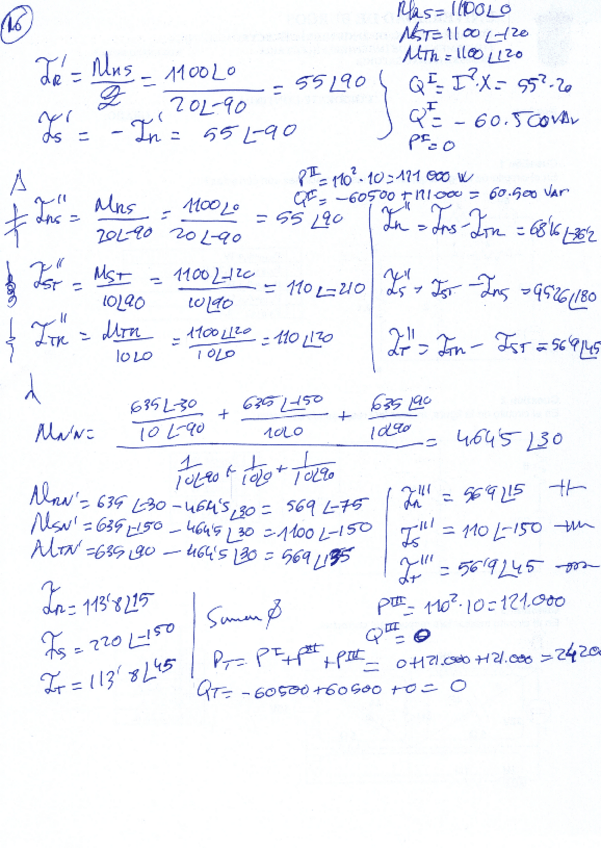 16
U_RS = 1100∠0
U_ST = 1100∠-120
U_TR = 1100∠120
I_R' = U_RS / Z = 1100∠0 / 20∠-90 = 55∠90
I_S' = -I_R' = 55∠-90
Q^I = I²·X = 55²·20
Q^I = -60.500 VAr
P^I = 0
P^II = 110²·10 = 121 000 W
Q^II = -60500 + 121.000 = 60.500 VAr
Δ
I_RS'' = U_RS / 20∠-90 = 1100∠0 / 20∠-90 = 55∠90
I_R'' = I_RS - I_TR = 68'16∠-36'2
I_ST'' = U_ST / 10∠90 = 1100∠-120 / 10∠90 = 110∠-210
I_S'' = I_ST - I_RS = 95'26∠180
I_TR'' = U_TR / 10∠0 = 1100∠120 / 10∠0 = 110∠120
I_T'' = I_TR - I_ST = 56'9∠45
U_N'N = (635∠-30 / 10∠-90 + 635∠-150 / 10∠0 + 635∠90 / 10∠90) / (1 / 10∠-90 + 1 / 10∠0 + 1 / 10∠90) = 464'5∠30
U_RN' = 635∠-30 - 464'5∠30 = 569∠-75
U_SN' = 635∠-150 - 464'5∠30 = 1100∠-150
U_TN' = 635∠90 - 464'5∠30 = 569∠135
I_R''' = 56'9∠15
I_S''' = 110∠-150
I_T''' = 56'9∠45
I_R = 113'8∠15
I_S = 220∠-150
I_T = 113'8∠45
Suman 0
P^III = 110²·10 = 121.000
Q^III = 0
P_T = P^I + P^II + P^III = 0 + 121.000 + 121.000 = 2420
Q_T = -60500 + 60500 + 0 = 0